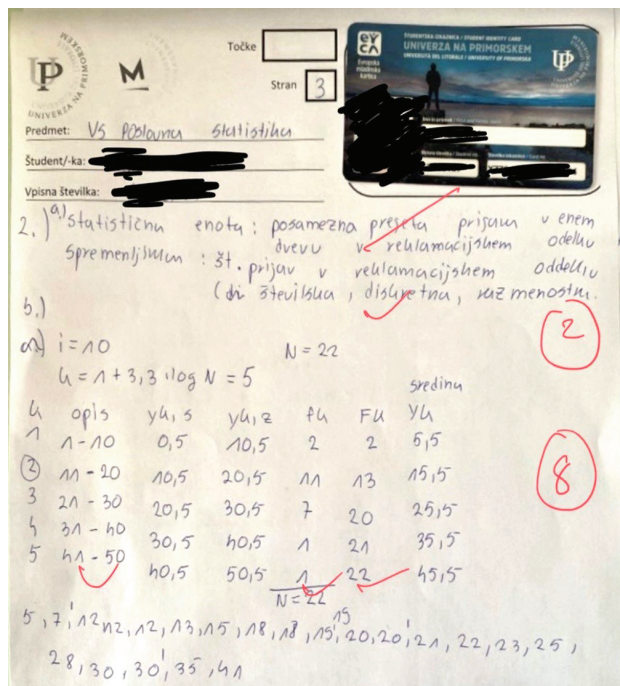 Točke
Stran 3
UP
UNIVERZA NA PRIMORSKEM
M
EYCA
Evropska mladinska kartica
ŠTUDENTSKA IZKAZNICA / STUDENT IDENTITY CARD
UNIVERZA NA PRIMORSKEM
UNIVERSITÀ DEL LITORALE / UNIVERSITY OF PRIMORSKA
UP
Predmet: VS Poslovna statistika
Študent/-ka:
Vpisna številka:
2.) a.) statistična enota: posamezna prijava v enem
dnevu v reklamacijskem odelku
spremenljivka: št. prijav v reklamacijskem oddelku
številska, diskretna, razmernostna.
2
b.)
a) i=10 N=22
k=1+3,3·log N=5
sredina
k opis yk,s yk,z fk Fk yk
1 1-10 0,5 10,5 2 2 5,5
2 11-20 10,5 20,5 11 13 15,5
8
3 21-30 20,5 30,5 7 20 25,5
4 31-40 30,5 40,5 1 21 35,5
5 41-50 40,5 50,5 1 22 45,5
N=22
15
5,7,12,12,12,13,15,18,18,15,20,20,21,22,23,25,
28,30,30,35,41